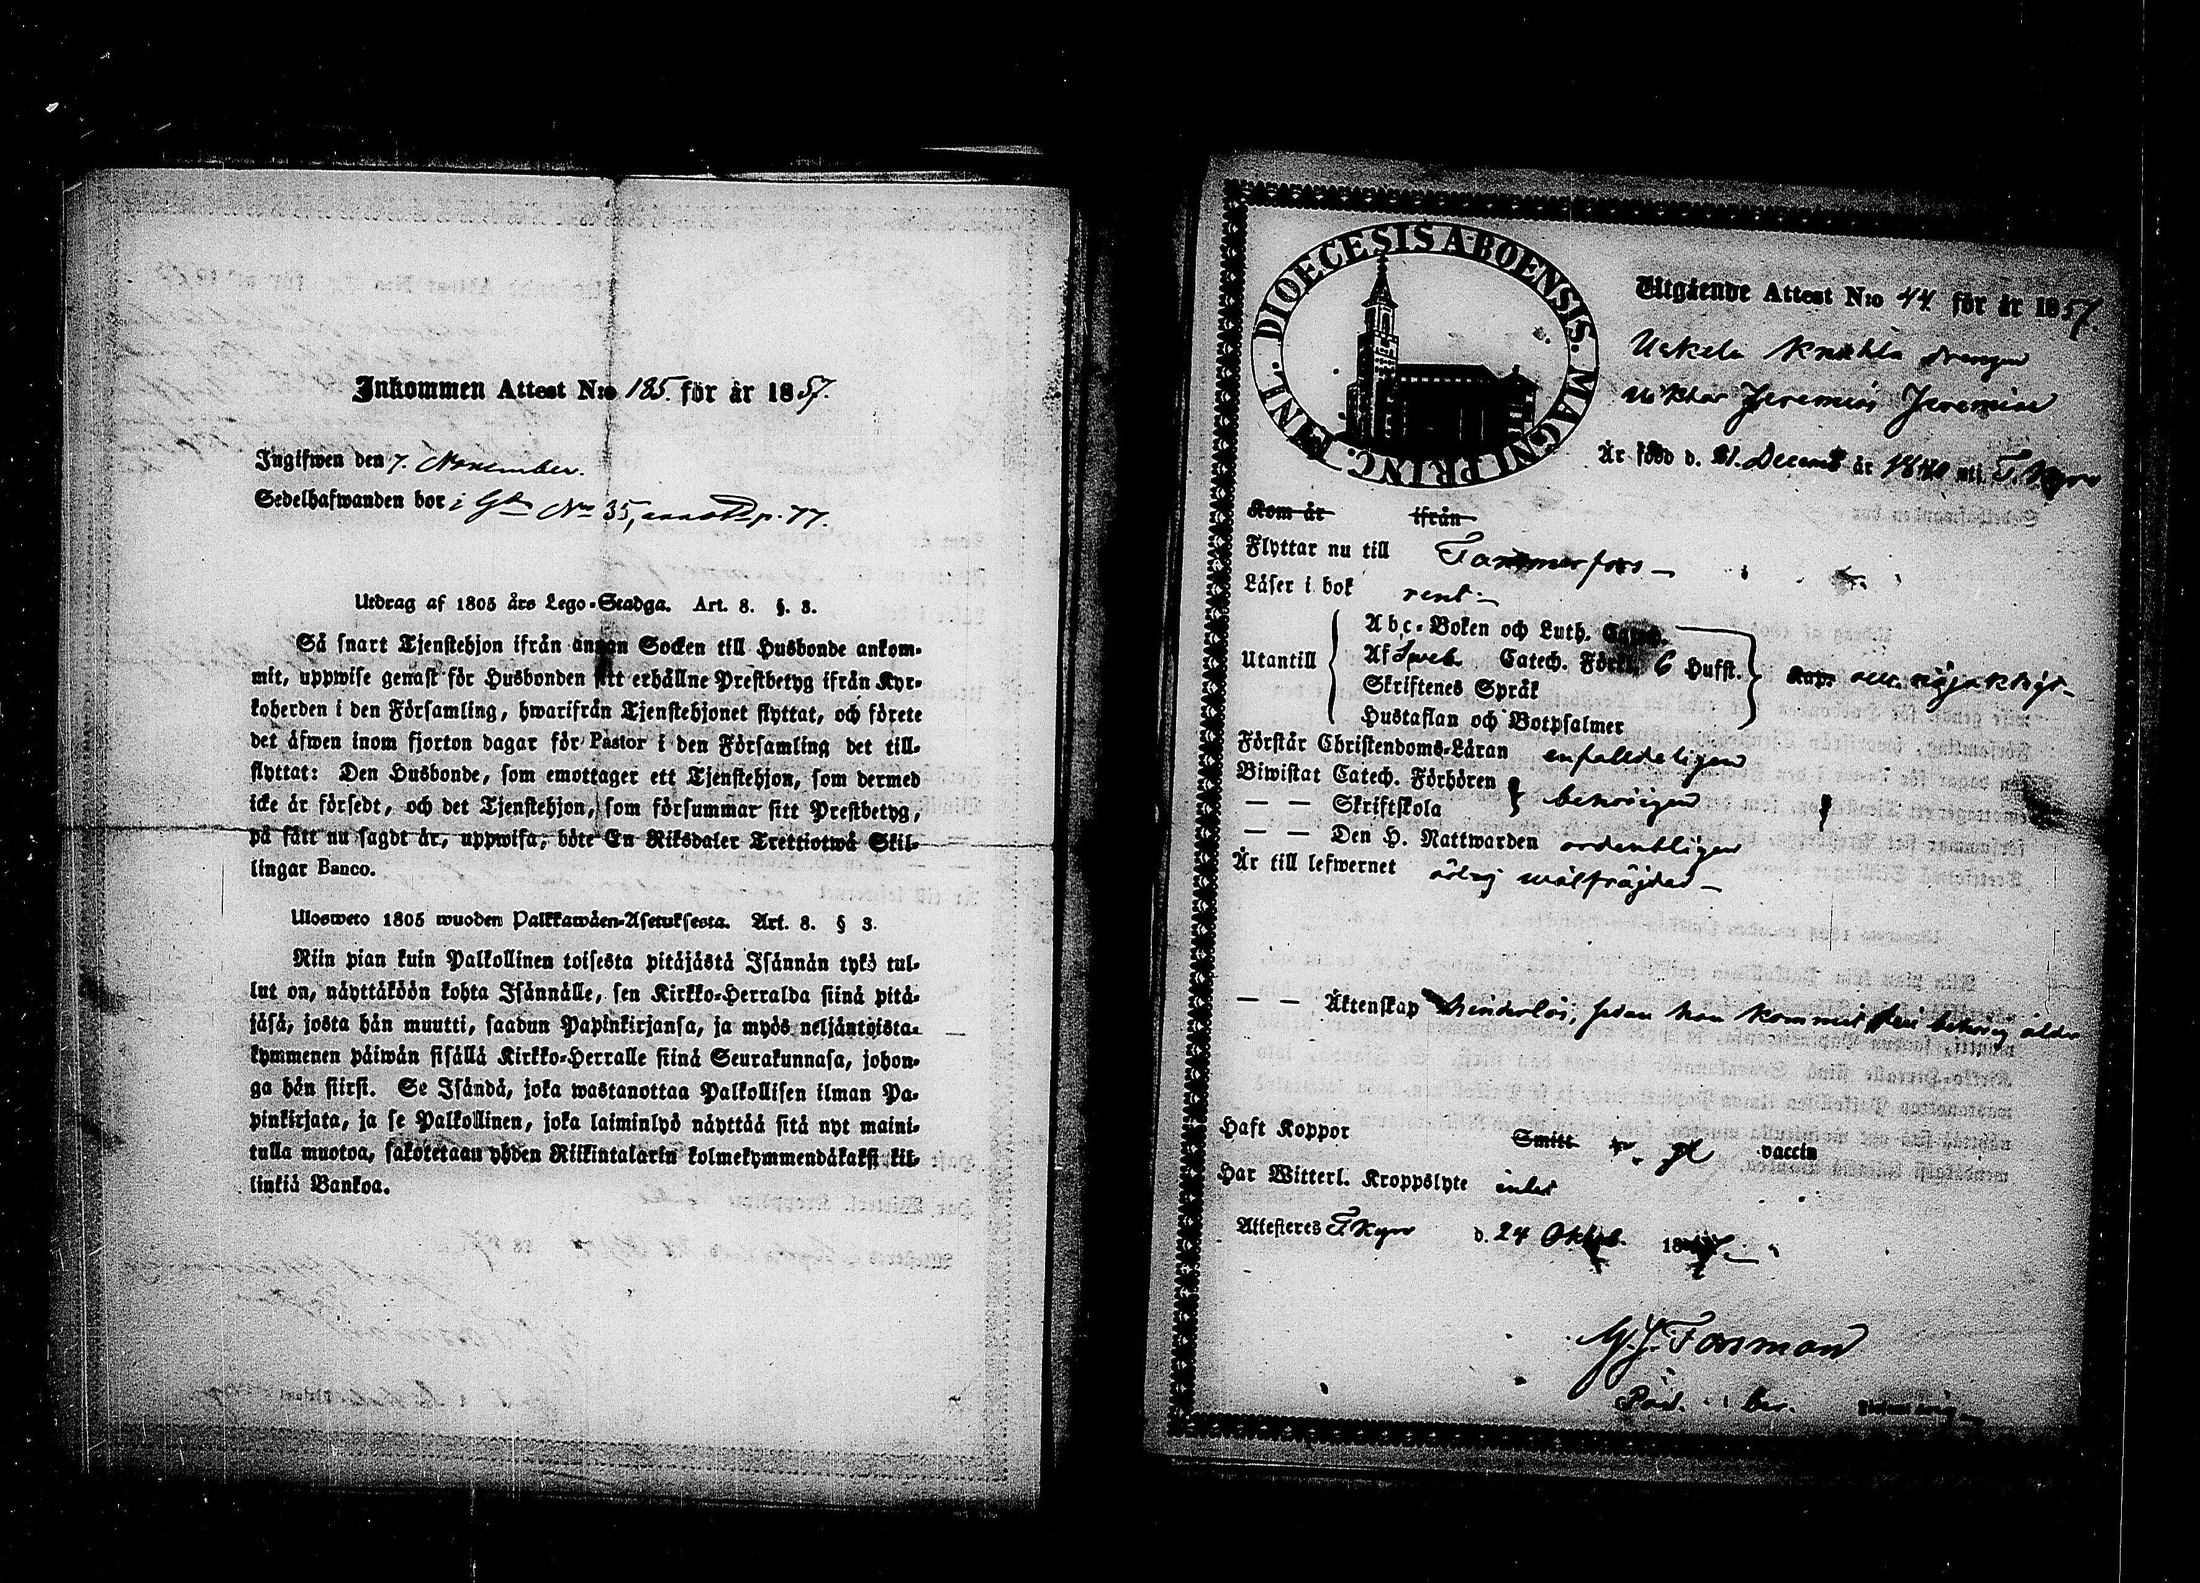 Inkommen Attest N:o 185. för år 1857.
Ingifwen den 7. November.
Sedelhafwanden bor i Gd No 35, p. 77.
Utdrag af 1805 års Lego-Stadga. Art. 8. §. 3.
Så snart Tjenstehjon ifrån annan Socken till Husbonde ankom-
mit, uppwise genast för Husbonden sitt erhållne Prestbetyg ifrån Kyr-
koherden i den Församling, hwarifrån Tjenstehjonet flyttat, och förete
det äfwen inom fjorton dagar för Pastor i den Församling det till-
flyttat: Den Husbonde, som emottager ett Tjenstehjon, som dermed
icke är försedt, och det Tjenstehjon, som försummar sitt Prestbetyg,
på sätt nu sagdt är, uppwisa, böte En Riksdaler Trettiotwå Skil-
lingar Banco.
Ulosweto 1805 wuoden Palkkawäen-Asetuksesta. Art. 8. § 3.
Niin pian kuin Palkollinen toisesta pitäjästä Isännän tykö tul-
lut on, näyttäköön kohta Isännälle, sen Kirkko-Herralda siinä pitä-
jäsä, josta hän muutti, saadun Papinkirjansa, ja myös neljäntoista-
kymmenen päiwän sisällä Kirkko-Herralle siinä Seurakunnasa, johon-
ga hän siirsi. Se Isändä, joka wastanottaa Palkollisen ilman Pa-
pinkirjata, ja se Palkollinen, joka laiminlyö näyttää sitä nyt maini-
tulla muotoa, sakotetaan yhden Riikintalarin kolmekymmendäkaksi kil-
linkiä Bankoa.
DIOECESIS ABOENSIS. MAGNI PRINC. FINL.
Utgående Attest N:o 44. för år 1857.
Uskela Knuhla drengen
Jeremias Jeremiae
Är född d. 21. Decemb år 18 uti T. Kyro
Kom år ifrån
Flyttar nu till Tammerfors
Läser i bok rent
Utantill
Abc-Boken och Luth. Catech.
Af Sveb. Catech. Förkl. 6 Hufst.
Skriftenes Språk
Hustaflan och Botpsalmer
Kap. nöjaktigt
Förstår Christendoms-Läran enfaldeligen
Biwistat Catech. Förhören
— — Skriftskola
behörigen
— — Den H. Nattwarden ordentligen
Är till lefwernet ärlig wälfräjdad
— — Äktenskap hinderlös, sedan han kommit till behörig ålder
Haft Koppor Smitt vaccin
Har Witterl. Kroppslyte intet
Attesteras T. Kyro d. 24 Oktob. 1857.
M. J. Forsman
Past. ber.